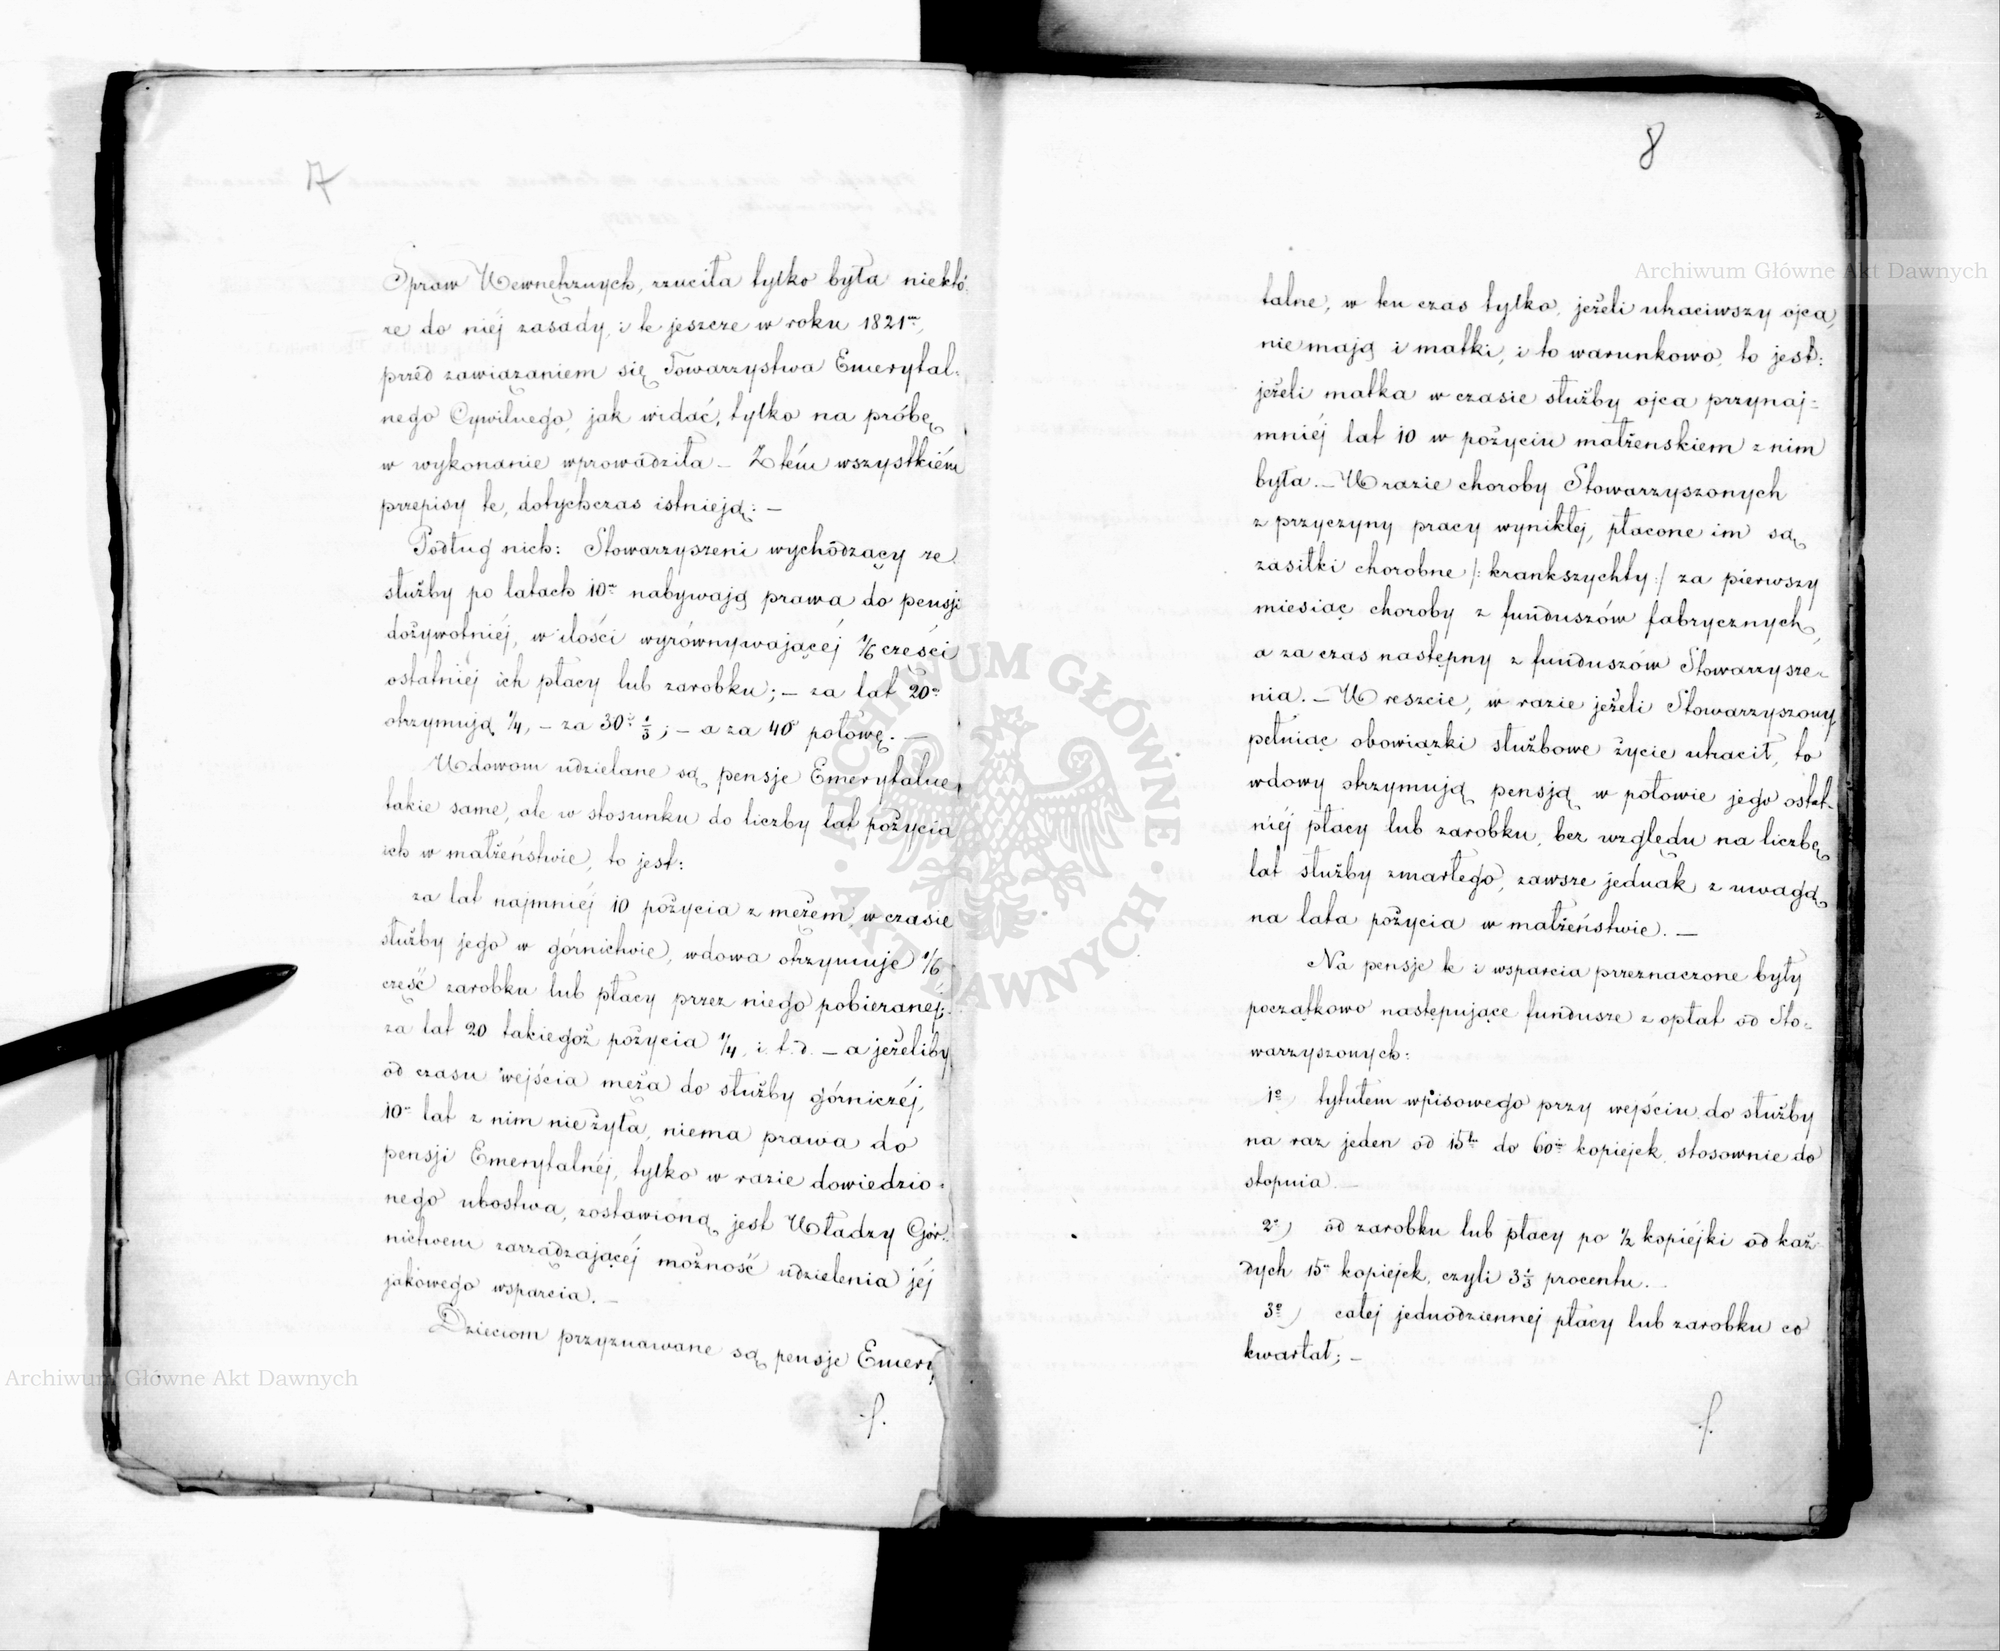 7
Spraw Wewnętrznych, rzuciła tylko była niektó-
re do niéj zasady, i te jeszcze w roku 1821m,
przed zawiązaniem się Towarzystwa Emerytal-
nego Cywilnego, jak widać, tylko na próbę
w wykonanie wprowadziła – Z tém wszystkiém
przepisy te, dotychczas istnieją: –
Podług nich: Stowarzyszeni wychodzący ze
służby po latach 10u nabywają prawa do pensji
dożywotniéj, w ilości wyrównywającéj 1/6 części
ostatniéj ich płacy lub zarobku; – za lat 20a
otrzymują 1/4, – za 30i 1/3; – a za 40 połowę. –
Wdowom udzielane są pensje Emerytalne
takie same, ale w stosunku do liczby lat pożycia
ich w małżeństwie, to jest:
za lat najmniéj 10 pożycia z mężem, w czasie
służby jego w górnictwie, wdowa otrzymuje 1/6
część zarobku lub płacy przez niego pobieranéj;
za lat 20 takiegoż pożycia 1/4, i. t. d. – a jeżeliby
od czasu wejścia męża do służby górniczéj,
10u lat z nim nie żyła, niema prawa do
pensji Emerytalnéj, tylko w razie dowiedzio-
nego ubostwa, zostawioną jest Władzy Gór-
nictwem zarządzającéj możność udzielenia jéj
jakowego wsparcia. –
Dzieciom przyznawane są pensje Emery
8
talne, w ten czas tylko, jeżeli utraciwszy ojca,
nie mają i matki, i to warunkowo, to jest:
jeżeli matka w czasie służby ojca przynaj-
mniéj lat 10 w pożyciu małżenskiem z nim
była. – W razie choroby Stowarzyszonych
z przyczyny pracy wynikłej, płacone im są
zasiłki chorobne /: krankszychty :/ za pierwszy
miesiąc choroby z funduszów fabrycznych,
a za czas następny z funduszów Stowarzysze-
nia. – W reszcie, w razie jeżeli Stowarzyszony
pełniąc obowiązki służbowe życie utracił, to
wdowy otrzymują pensją w połowie jego ostat-
niéj płacy lub zarobku, bez względu na liczbę
lat służby zmarłego, zawsze jednak z uwagą
na lata pożycia w małżeństwie. –
Na pensje te i wsparcia przeznaczone były
początkowo następujące fundusze z opłat od Sto-
warzyszonych:
1o) tytułem wpisowego przy wejściu do służby
na raz jeden od 15tu do 60ciu kopiejek stosownie do
stopnia. –
2o) od zarobku lub płacy po 1/2 kopiéjki od każ
dych 15u kopiejek, czyli 3 1/3 procentu. –
3o) całej jednodziennej płacy lub zarobku co
kwartał; –
Archiwum Główne Akt Dawnych
Archiwum Główne Akt Dawnych
ARCHIWUM GŁÓWNE · AKT DAWNYCH ·